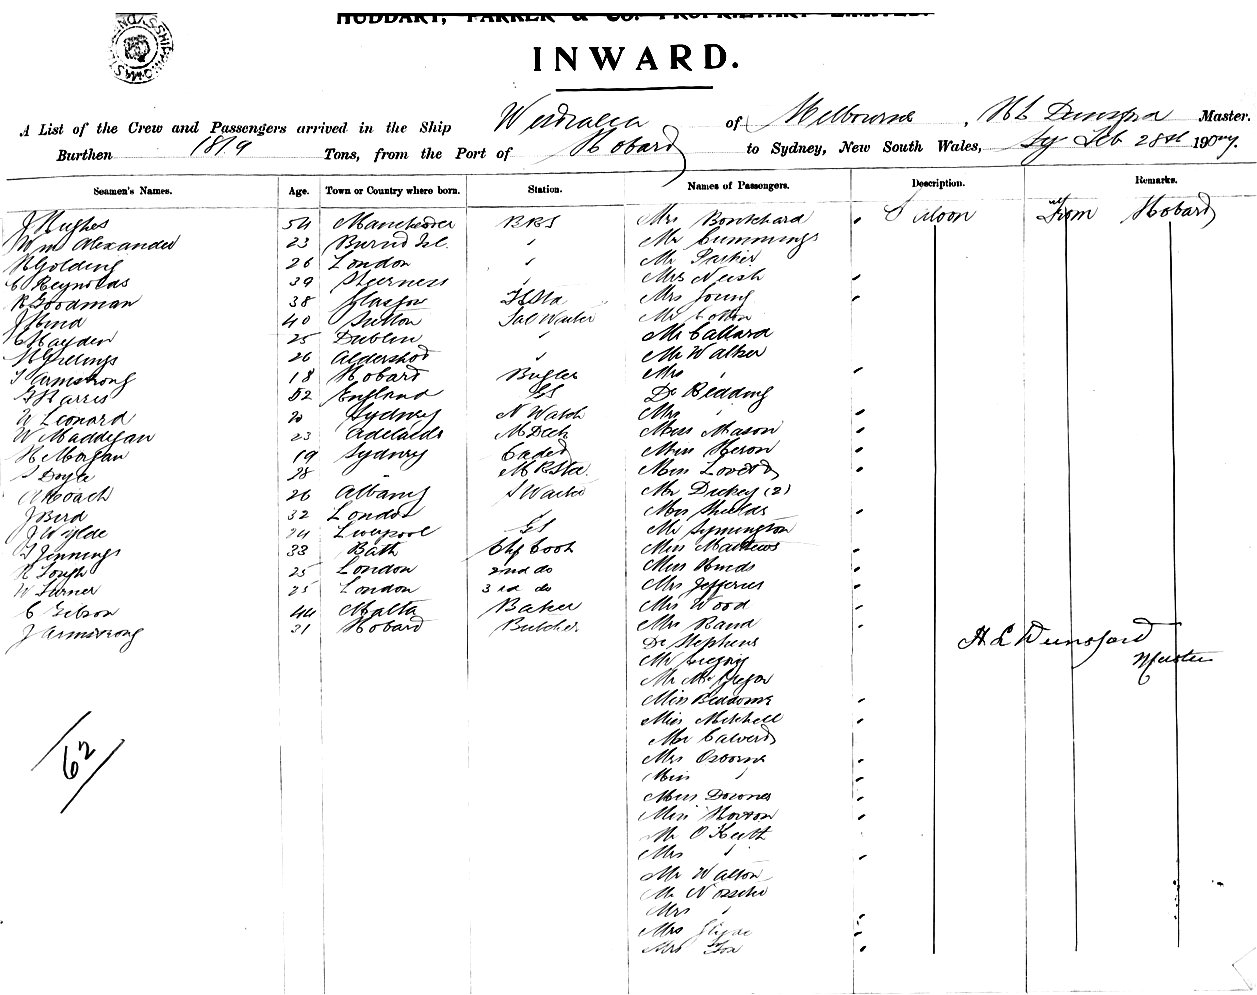 HUDDART, PARKER & CO. PROPRIETARY LIMITED.
INWARD.
A List of the Crew and Passengers arrived in the Ship Westralia of Melbourne, H L Dunsford Master.
Burthen 1819 Tons, from the Port of Hobart to Sydney, New South Wales, Sy Feb 28th 1907.
Seamen's Names. Age. Town or Country where born. Station. Names of Passengers. Description. Remarks.
J Hughes 54 Manchester BRS Mrs Bouchard " Saloon From Hobart
Wm Alexander 23 " Mr Cummings
H Golding 26 London " Mr Parker
C Reynolds 39 Sheerness " Mrs Neish "
R Goodman 38 Glasgow Mrs Young "
J Hind 40 Sutton Sal Waiter Mr Cotton
C Hayden 25 Dublin " Mr Callard
26 Aldershot " Mr Walker
T Armstrong 18 Hobart Bugler Mrs " "
G Harris 52 England GS Dr Redding
W Leonard 20 Sydney N Watch Mrs " "
W Maddigan 23 Adelaide M Deck Miss Mason "
H Morgan 19 Sydney Cadet Miss Heron "
S Doyle 38 Miss Lovett "
Roach 26 Albany S Waiter Mr Dickey (2)
J Bird 32 London " Miss Shields "
J Wylde 24 Liverpool GS Mr Symington
T Jennings 33 Bath Chf Cook Miss Matthews "
25 London 2nd do Miss Hinds "
W Turner 25 London 3rd do Mrs Jefferies "
C Gibson 44 Malta Baker Mrs Wood "
J Armstrong 31 Hobart Butcher Mrs Rand "
Dr Stephens
H L Dunsford
Mr Gregory
Master
Mr McGregor
Miss Beddome "
Miss Mitchell "
Mr Calvert
Mrs Osborne "
Miss " "
62
Miss Downes "
Miss Horton "
Mr O'Keefe
Mrs " "
Mr Walton
Mr
Mrs " "
Mrs "
Mrs Fox "